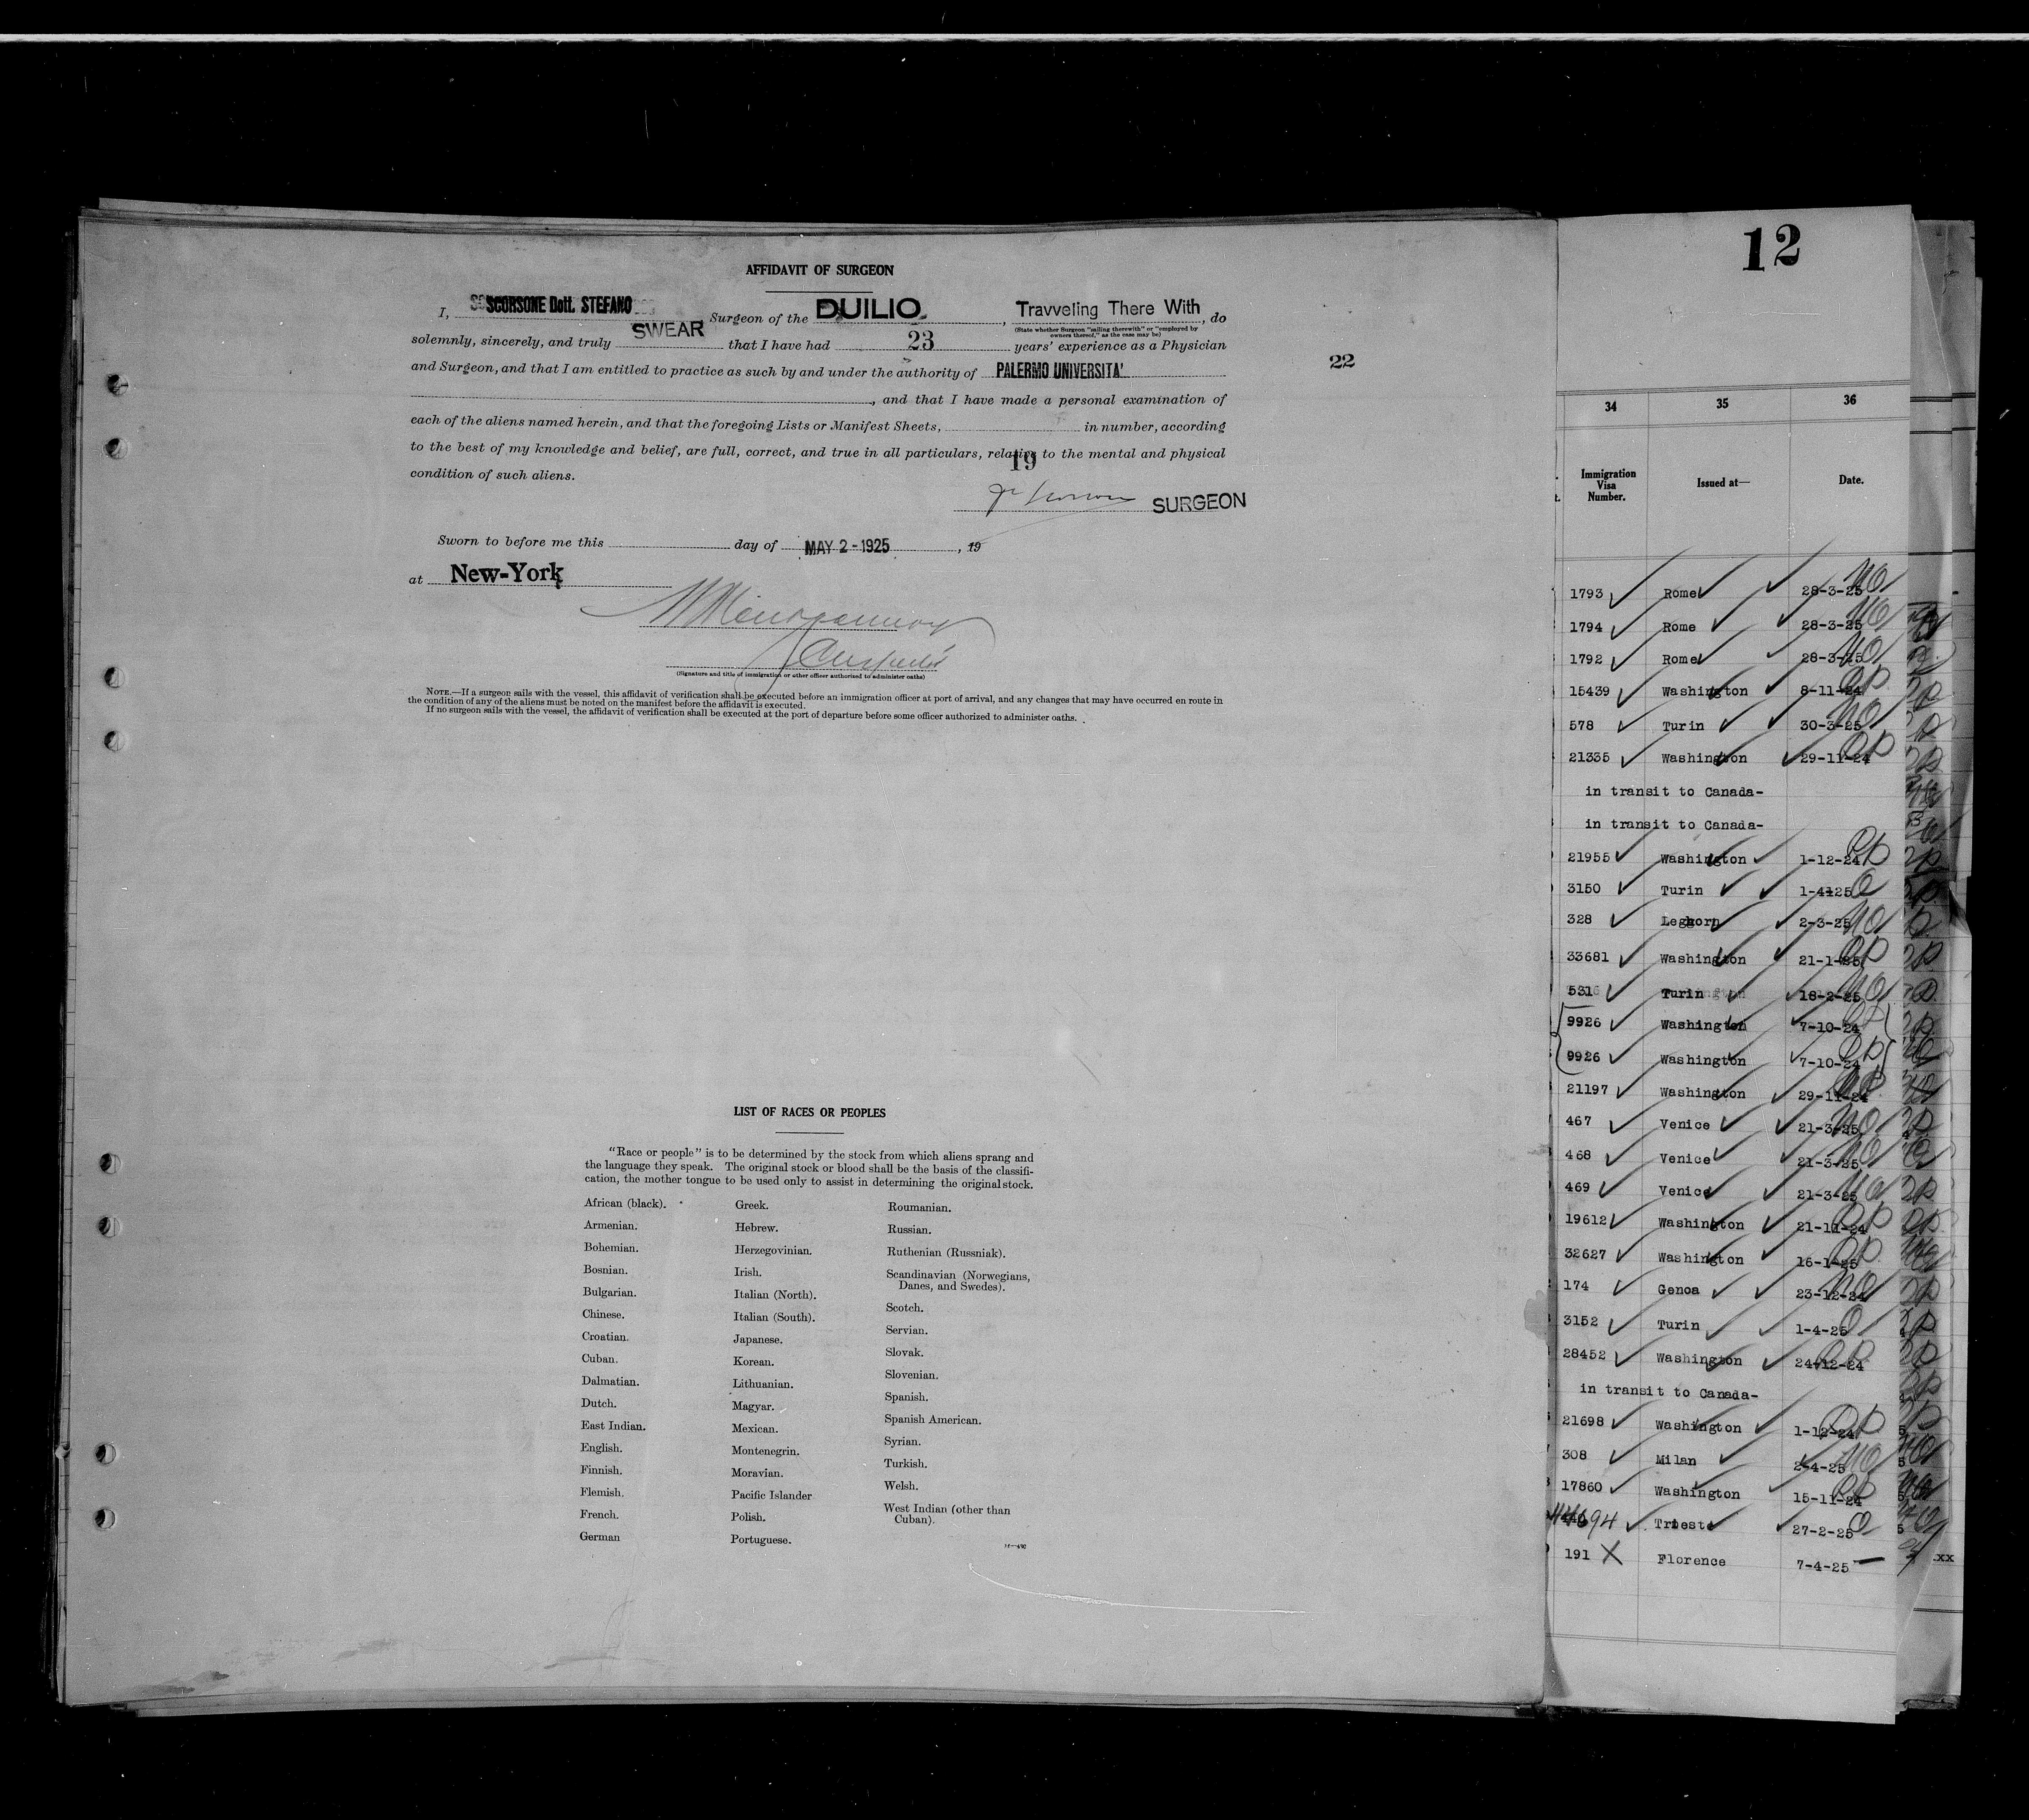 AFFIDAVIT OF SURGEON
I, SCORSONE Dott. STEFANO Surgeon of the DUILIO, Travveling There With, do
(State whether Surgeon "sailing therewith" or "employed by owners thereof," as the case may be)
solemnly, sincerely, and truly SWEAR that I have had 23 years' experience as a Physician
and Surgeon, and that I am entitled to practice as such by and under the authority of PALERMO UNIVERSITA'
, and that I have made a personal examination of
each of the aliens named herein, and that the foregoing Lists or Manifest Sheets, in number, according
to the best of my knowledge and belief, are full, correct, and true in all particulars, relative to the mental and physical
19
condition of such aliens.
SURGEON
Sworn to before me this day of MAY 2-1925, 19
at New-York
(Signature and title of immigration or other officer authorized to administer oaths)
NOTE.—If a surgeon sails with the vessel, this affidavit of verification shall be executed before an immigration officer at port of arrival, and any changes that may have occurred en route in
the condition of any of the aliens must be noted on the manifest before the affidavit is executed.
If no surgeon sails with the vessel, the affidavit of verification shall be executed at the port of departure before some officer authorized to administer oaths.
22
LIST OF RACES OR PEOPLES
"Race or people" is to be determined by the stock from which aliens sprang and
the language they speak. The original stock or blood shall be the basis of the classifi-
cation, the mother tongue to be used only to assist in determining the original stock.
African (black).
Armenian.
Bohemian.
Bosnian.
Bulgarian.
Chinese.
Croatian.
Cuban.
Dalmatian.
Dutch.
East Indian.
English.
Finnish.
Flemish.
French.
German
Greek.
Hebrew.
Herzegovinian.
Irish.
Italian (North).
Italian (South).
Japanese.
Korean.
Lithuanian.
Magyar.
Mexican.
Montenegrin.
Moravian.
Pacific Islander
Polish.
Portuguese.
Roumanian.
Russian.
Ruthenian (Russniak).
Scandinavian (Norwegians,
Danes, and Swedes).
Scotch.
Servian.
Slovak.
Slovenian.
Spanish.
Spanish American.
Syrian.
Turkish.
Welsh.
West Indian (other than
Cuban).
12
34 35 36
Immigration Visa Number. Issued at— Date.
1793 Rome 28-3-25
1794 Rome 28-3-25
1792 Rome 28-3-25
15439 Washington 8-11-24
578 Turin 30-3-25
21335 Washington 29-11-24
in transit to Canada-
in transit to Canada-
21955 Washington 1-12-24
3150 Turin 1-4-25
328 Leghorn 2-3-25
33681 Washington 21-1-25
531 Turin 18-2-25
9926 Washington 7-10-24
9926 Washington 7-10-24
21197 Washington 29-11-24
467 Venice 21-3-25
468 Venice 21-3-25
469 Venice 21-3-25
19612 Washington 21-11-24
32627 Washington 16-1-25
174 Genoa 23-12-24
3152 Turin 1-4-25
28452 Washington 24-12-24
in transit to Canada-
21698 Washington 1-12-24
308 Milan 2-4-25
17860 Washington 15-11-24
Trieste 27-2-25
191 Florence 7-4-25